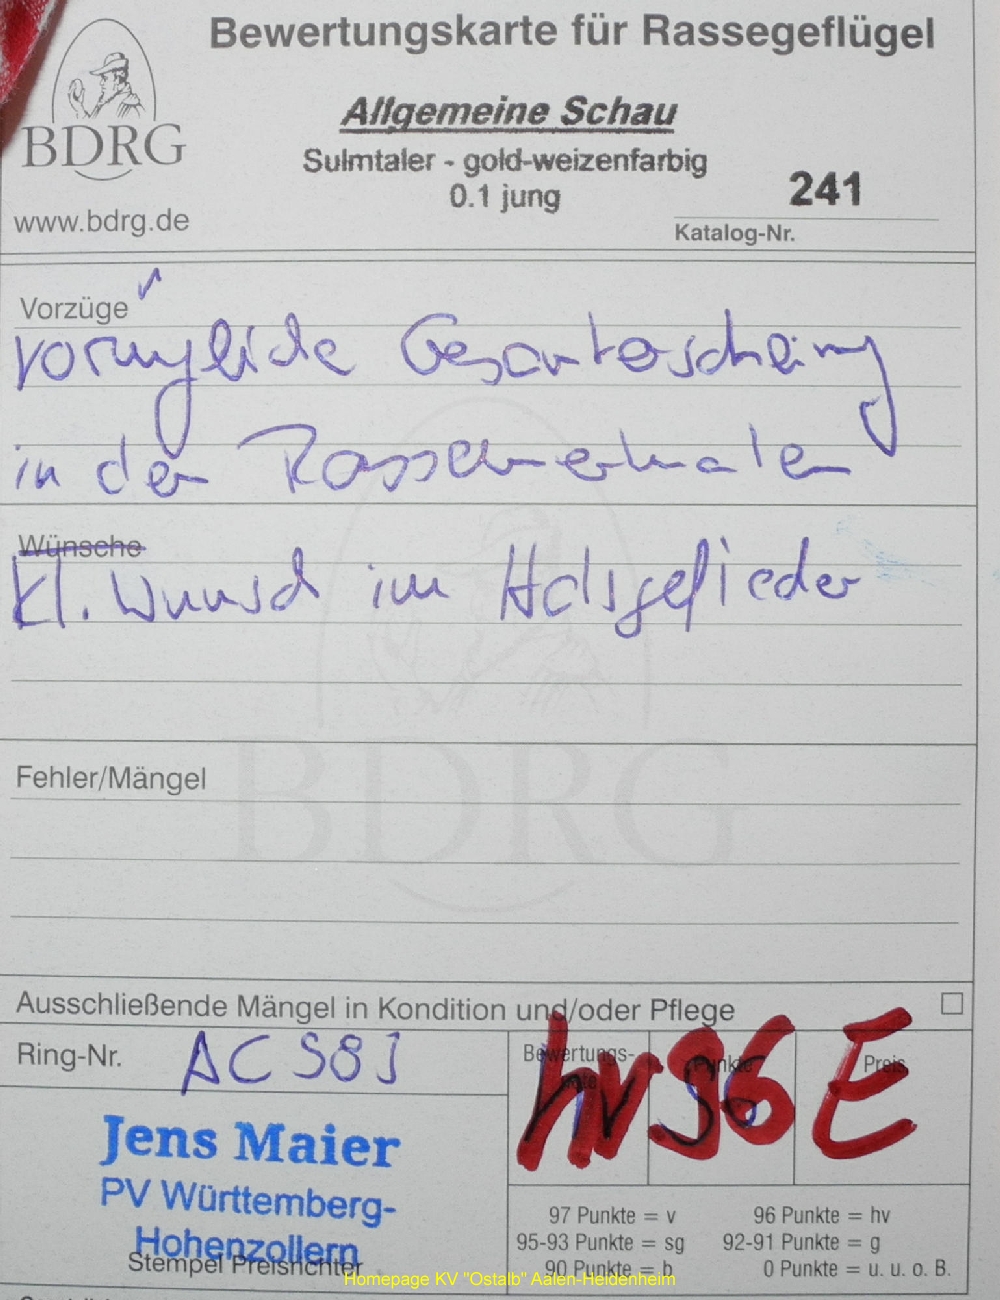 Bewertungskarte für Rassegeflügel
BDRG
www.bdrg.de
Allgemeine Schau
Sulmtaler - gold-weizenfarbig
0.1 jung
241
Katalog-Nr.
Vorzüge
vorzügliche Gesamterscheinung
in den Rassemerkmalen
Wünsche
kl. Wunsch im Halsgefieder
BDRG
Fehler/Mängel
Ausschließende Mängel in Kondition und/oder Pflege
Ring-Nr.
Bewertungs-
Punkte
Preis
hv 96 E
Jens Maier
PV Württemberg-
Hohenzollern
Stempel Preisrichter
97 Punkte = v
96 Punkte = hv
95-93 Punkte = sg
92-91 Punkte = g
90 Punkte = b
0 Punkte = u. u. o. B.
Homepage KV "Ostalb" Aalen-Heidenheim